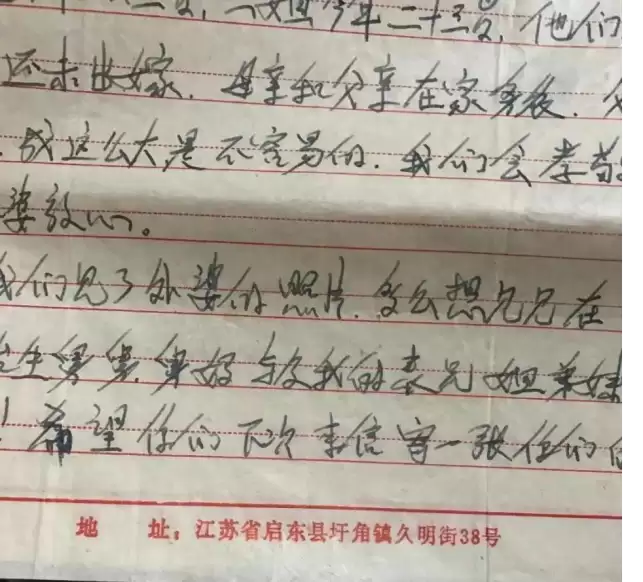 二姐今年二十三岁，他们
还未出嫁．母亲和父亲在家务农．
．成这么大是不容易的．我们会孝
婆放心。
我们见了外婆的照片．多么想见见在
舅舅．舅妈与及我的表兄姐弟妹
！希望你们下次来信寄一张你们
地 址：江苏省启东县圩角镇久明街38号